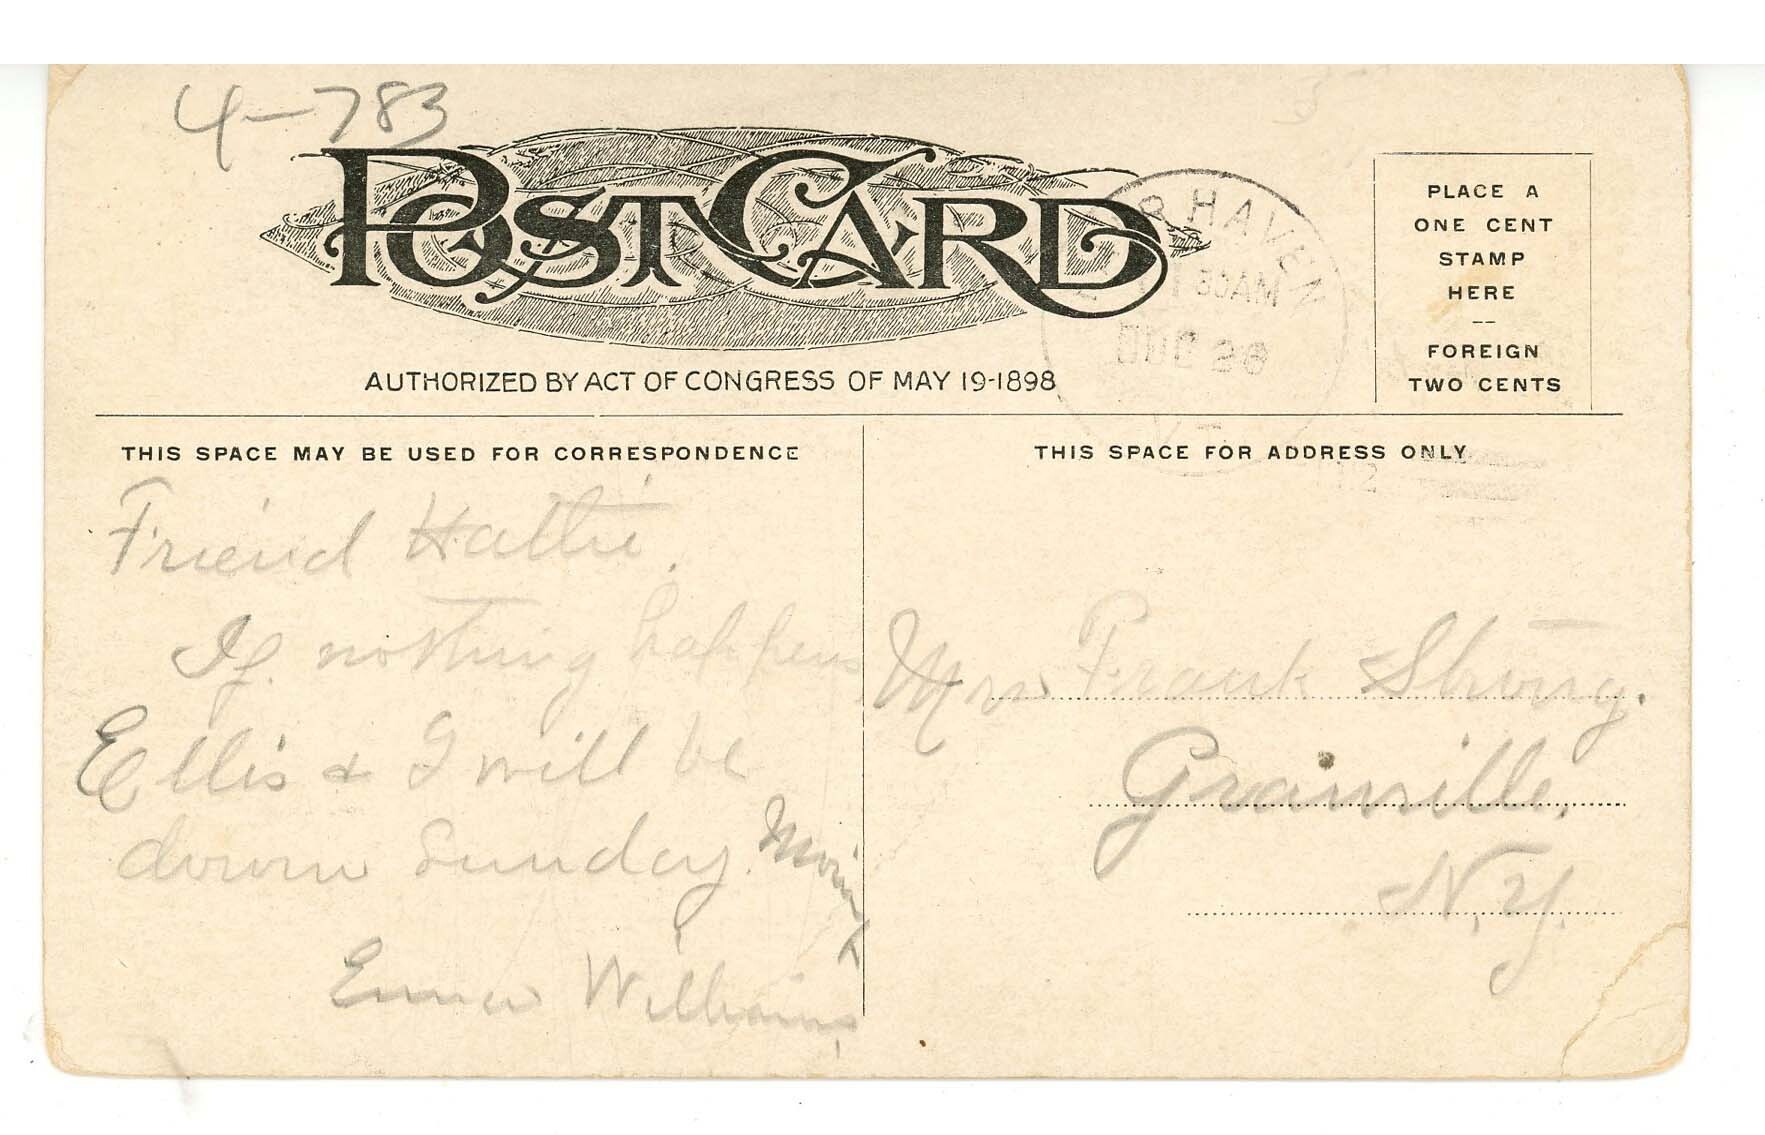 4-783
POST CARD
R HAVEN
30AM
DEC 28
VT
AUTHORIZED BY ACT OF CONGRESS OF MAY 19-1898
PLACE A
ONE CENT
STAMP
HERE
—
FOREIGN
TWO CENTS
THIS SPACE MAY BE USED FOR CORRESPONDENCE
Friend Hattie.
If nothing happens
Ellis & I will be
down Sunday.
Emma Williams
THIS SPACE FOR ADDRESS ONLY
Mrs Frank Strong.
Granville,
N.Y.